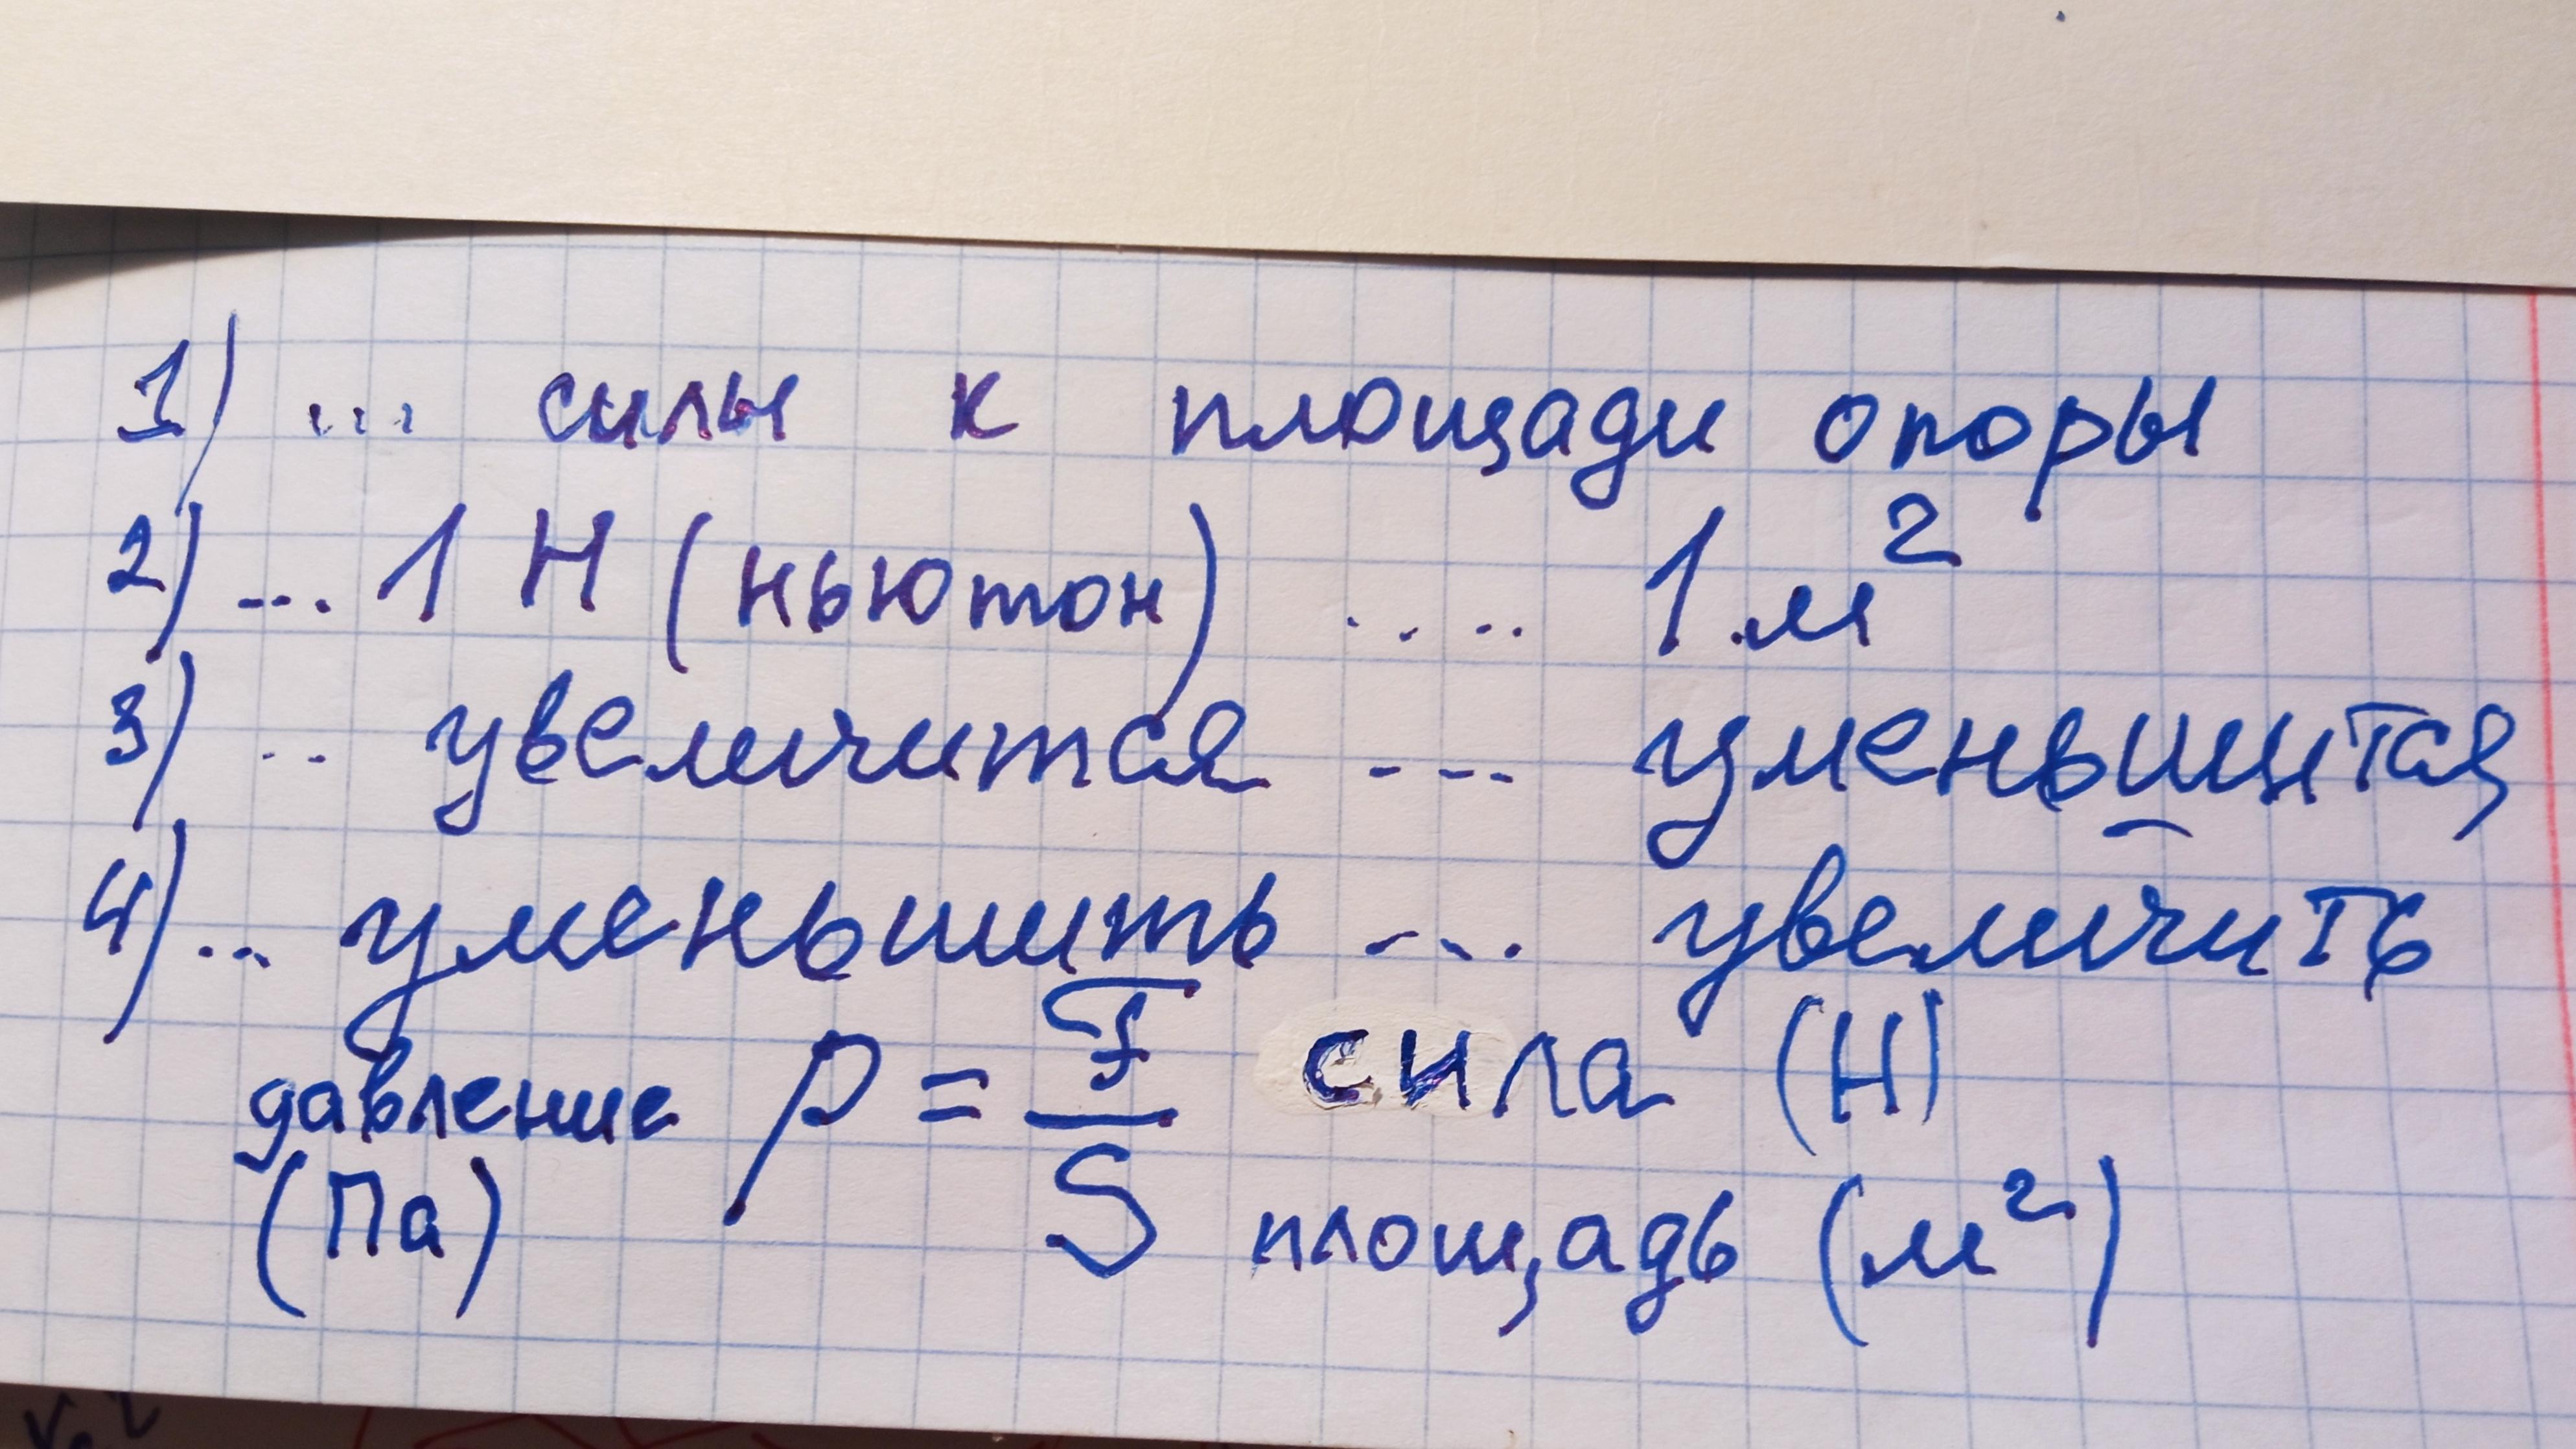 1) ... силы к площади опоры
2) ... 1 Н (ньютон) .... 1 м²
3) .. увеличится --- уменьшится
4) ... уменьшить --... увеличить
давление p = F/S сила (Н)
(Па) площадь (м²)